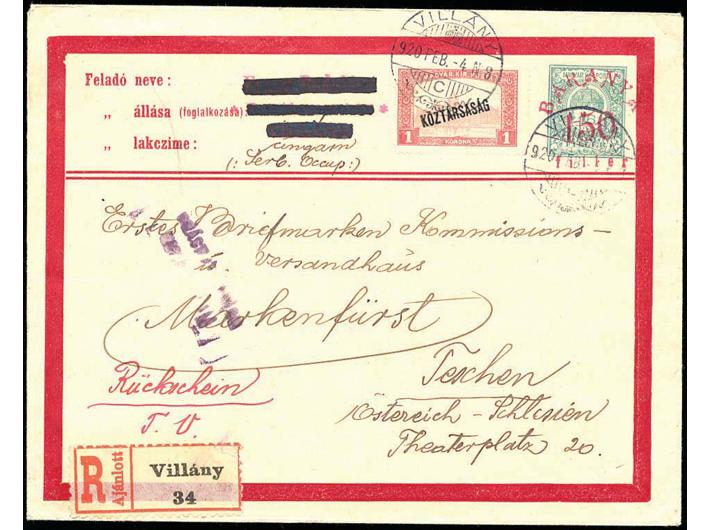 VILLÁNY
920 FEB. -4. N. 8
C
Feladó neve:
„ állása (foglalkozása):
*
„ lakczime:
Ungarn
(: Serb. Occup:)
MAGYAR KIR. POSTA
KÖZTÁRSASÁG
1 KORONA 1
BARANYA
150
filler
Erstes Briefmarken Kommissions-
u. Versandhaus
Markenfürst
Teschen
Östereich - Schlesien
Theaterplatz 20.
Rückschein
T. V.
R
Ajánlott
Villány
34